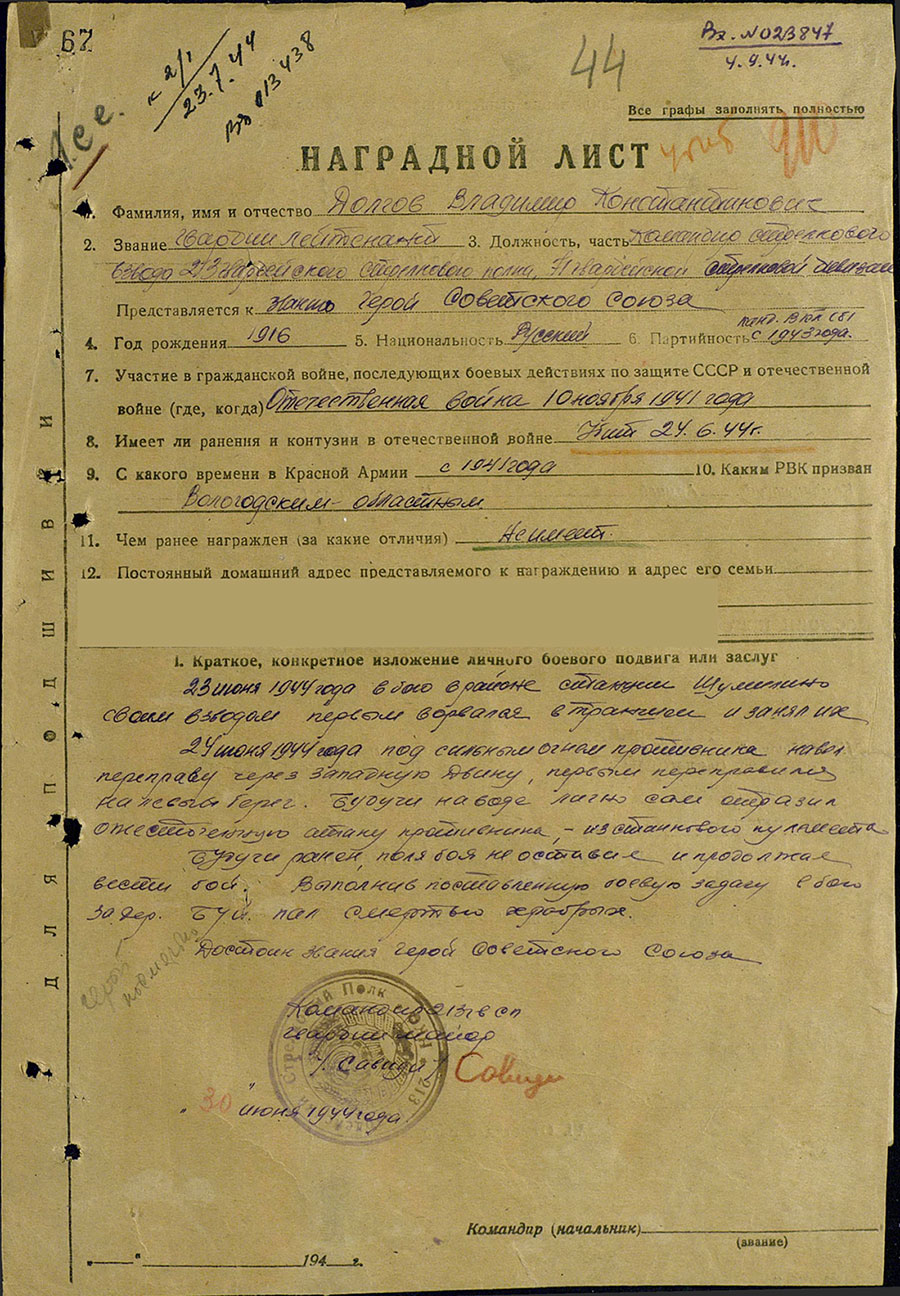 67
23.7.44
Вх 013438
44
Вх. №023847
4.9.44г.
Все графы заполнять полностью
НАГРАДНОЙ ЛИСТ
убит
1. Фамилия, имя и отчество Долгов Владимир Константинович
2. Звание гвардии лейтенант 3. Должность, часть Командир стрелкового
взвода 213 гвардейского стрелкового полка, 71 гвардейской стрелковой дивизии
Представляется к званию Герой Советского Союза
канд. ВКП(б)
4. Год рождения 1916 5. Национальность Русский 6. Партийность с 1943 года.
7. Участие в гражданской войне, последующих боевых действиях по защите СССР и отечественной
войне (где, когда) Отечественная война 10 ноября 1941 года
8. Имеет ли ранения и контузии в отечественной войне 24.6.44г.
9. С какого времени в Красной Армии с 1941 года 10. Каким РВК призван
Вологодским областным
11. Чем ранее награжден (за какие отличия) Не имеет.
12. Постоянный домашний адрес представляемого к награждению и адрес его семьи
I. Краткое, конкретное изложение личного боевого подвига или заслуг
23 июня 1944 года в бою в районе станции Шумилино
своим взводом первым ворвался в траншеи и занял их
24 июня 1944 года под сильным огнем противника навел
переправу через Западную Двину, первым переправился
на левый берег. Будучи на воде лично сам отразил
ожесточенную атаку противника, - из станкового пулемета
Будучи ранен, поля боя не оставил и продолжал
вести бой. Выполнив поставленную боевую задачу в бою
за дер. Буй. пал смертью храбрых.
Достоин звания Герой Советского Союза
герой
посмертно
Командир 213 гв сп
гвардии майор
/Савицк/
"30" июня 1944 года.
Стрелковый Полк 213
ДЛЯ ПОДШИВКИ
Командир (начальник)
(звание)
" 194 г.